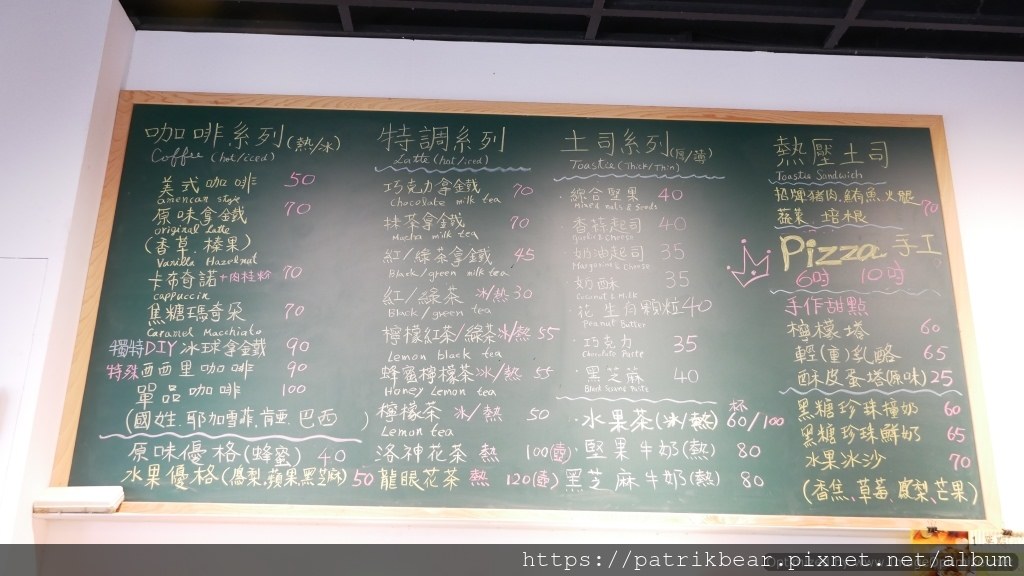 咖啡系列(熱/冰)
Coffee (hot/iced)
美式咖啡 50
american style
原味拿鐵 70
original Latte
(香草 榛果)
Vanilla Hazelnut
卡布奇諾+肉桂粉 70
cappuccin
焦糖瑪奇朵 70
Caramel Macchiato
獨特DIY冰球拿鐵 90
特殊西西里咖啡 90
單品咖啡 100
(國姓.耶加雪菲. 巴西)
原味優格(蜂蜜) 40
水果優格(鳳梨,蘋果,黑芝麻) 50
特調系列
Latte (hot/iced)
巧克力拿鐵 70
Chocolate milk tea
抹茶拿鐵 70
Macha milk tea
紅/綠茶拿鐵 45
Black/green milk tea
紅/綠茶 冰/熱 30
Black/green tea
檸檬紅茶/綠茶冰/熱 55
Lemon black tea
蜂蜜檸檬茶冰/熱 55
Honey lemon tea
檸檬茶 冰/熱 50
Lemon tea
洛神花茶 熱 100(壺)
龍眼花茶 熱 120(壺)
土司系列(厚/薄)
Toastie (Thick/Thin)
·綜合堅果 40
mixed nuts & seeds
香蒜起司 40
Garlic & Cheese
·奶油起司 35
Margarine & Cheese
·奶酥 35
Coconut & Milk
·花生有顆粒 40
Peanut Butter
·巧克力 35
Chocolate Paste
·黑芝麻 40
·水果茶(冰/熱) 杯60/100
·堅果牛奶(熱) 80
黑芝麻牛奶(熱) 80
熱壓土司
Toastie Sandwich
招牌豬肉.鮪魚.火腿
蔬菜、培根 70
Pizza 手工
6吋 10吋
手作甜點
檸檬塔 60
輕(重)乳酪 65
酥皮蛋塔(原味) 25
黑糖珍珠撞奶 60
黑糖珍珠鮮奶 65
水果冰沙 70
(香蕉、草莓、鳳梨、芒果)
https://patrikbear.pixnet.net/album